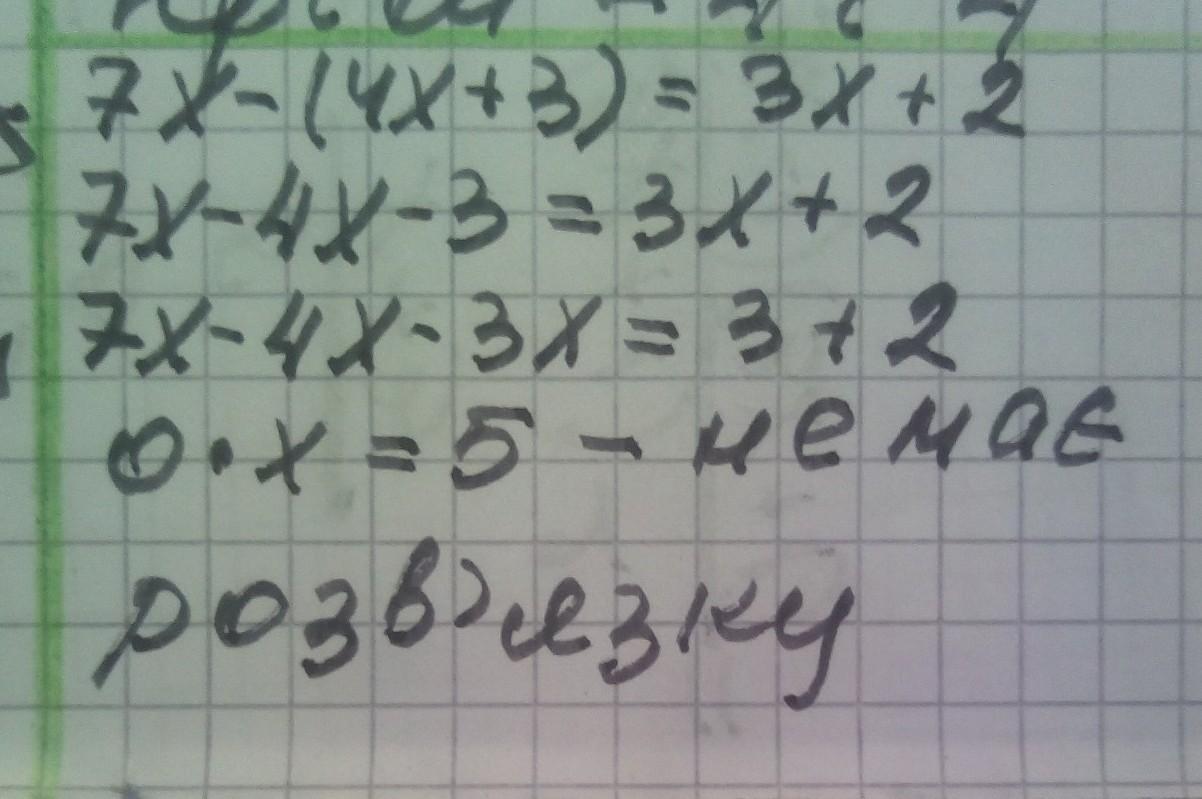 7x-(4x+3)=3x+2
7x-4x-3=3x+2
7x-4x-3x=3+2
0·x=5-не має
розв'язку